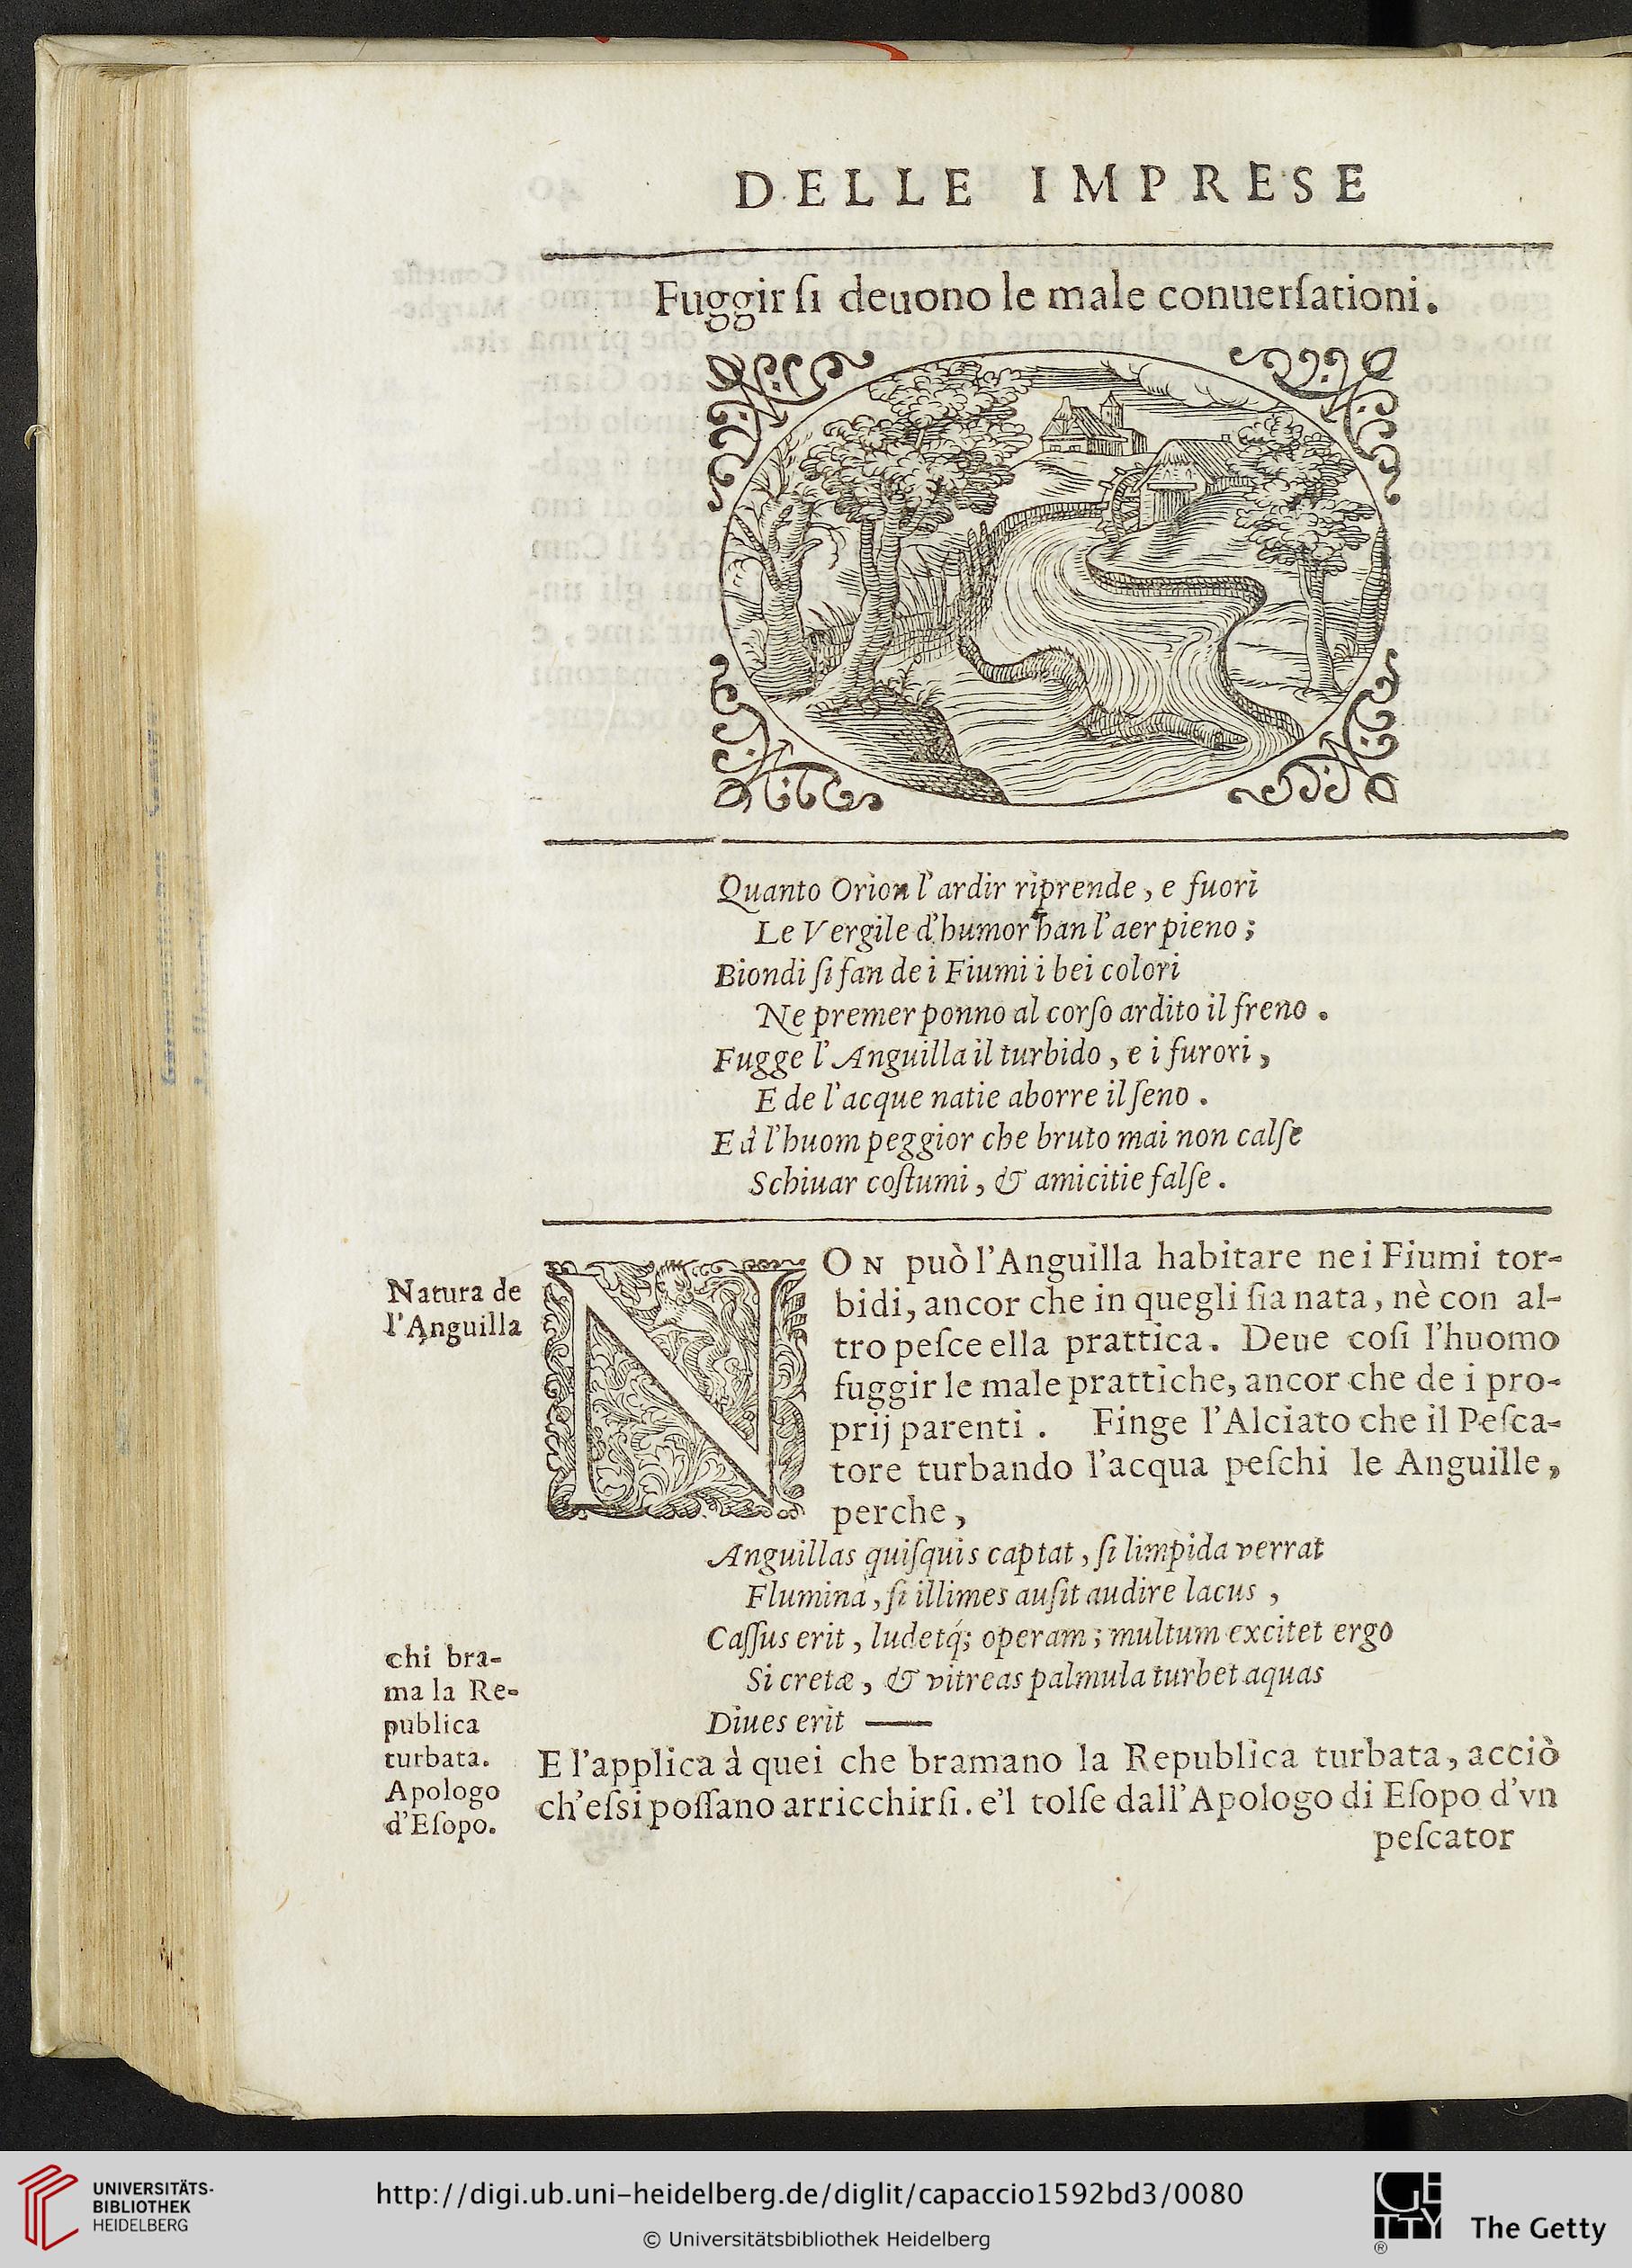 DELLE IMPRESE
Fuggir ſi deuono le male conuerſationi.
Quanto Orion l'ardir riprende, e fuori
Le Vergile d'humor han l'aer pieno;
Biondi ſi fan de i Fiumi i bei colori
Ne premer ponno al corſo ardito il freno.
Fugge l'Anguilla il turbido, e i furori,
E de l'acque natie aborre il ſeno.
E à l'huom peggior che bruto mai non calſe
Schiuar coſtumi, & amicitie falſe.
Natura de
l'Anguilla
NON può l'Anguilla habitare ne i Fiumi tor-
bidi, ancor che in quegli ſia nata, nè con al-
tro peſce ella prattica. Deue coſi l'huomo
fuggir le male prattiche, ancor che de i pro-
prij parenti. Finge l'Alciato che il Peſca-
tore turbando l'acqua peſchi le Anguille,
perche,
Anguillas quiſquis captat, ſi limpida verrat
Flumina, ſi illimes auſit audire lacus,
Caſſus erit, ludetq́; operam; multum excitet ergo
Si cretæ, & vitreas palmula turbet aquas
Diues erit ——
chi bra-
ma la Re-
publica
turbata.
Apologo
d'Eſopo.
E l'applica à quei che bramano la Republica turbata, acciò
ch'eſsi poſſano arricchirſi. e'l tolſe dall'Apologo di Eſopo d'vn
peſcator
UNIVERSITÄTS-
BIBLIOTHEK
HEIDELBERG
http://digi.ub.uni-heidelberg.de/diglit/capaccio1592bd3/0080
© Universitätsbibliothek Heidelberg
GETTY
®
The Getty